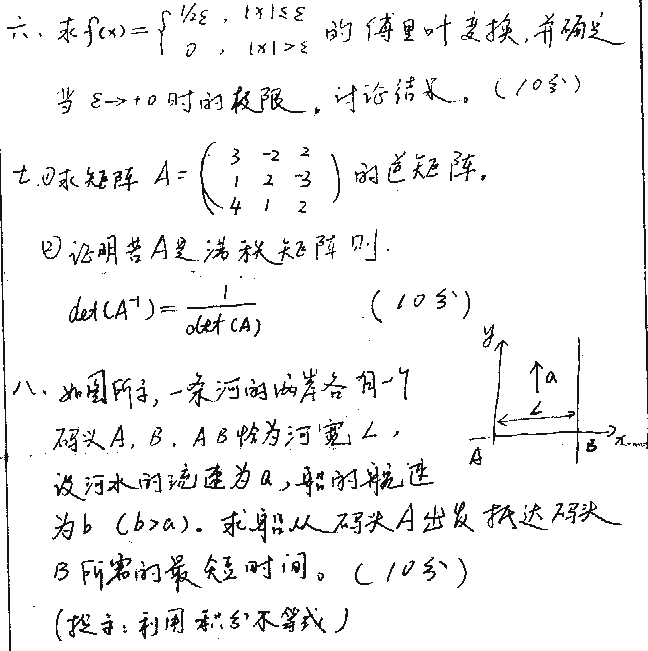 六、求f(x)={ 1/2ε , |x|≤ε 的傅里叶变换,并确定
0 , |x|>ε
当 ε→+0 时的极限,讨论结果。(10分)
七、①求矩阵 A= ( 3 -2 2 的逆矩阵。
1 2 -3
4 1 2 )
② 证明若A是满秩矩阵则.
det(A⁻¹)= 1/det(A) (10分)
八、如图所示,一条河的两岸各有一个
码头A、B. AB恰为河宽L,
设河水的流速为a,船的航速
为b (b>a)。求船从码头A出发抵达码头
B所需的最短时间。(10分)
(提示:利用积分不等式)
y
a
L
A
B
x